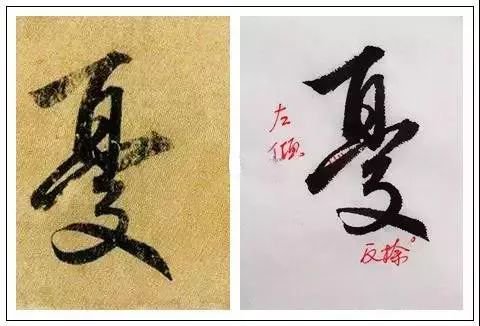 夏
夏
左
倾
反捺